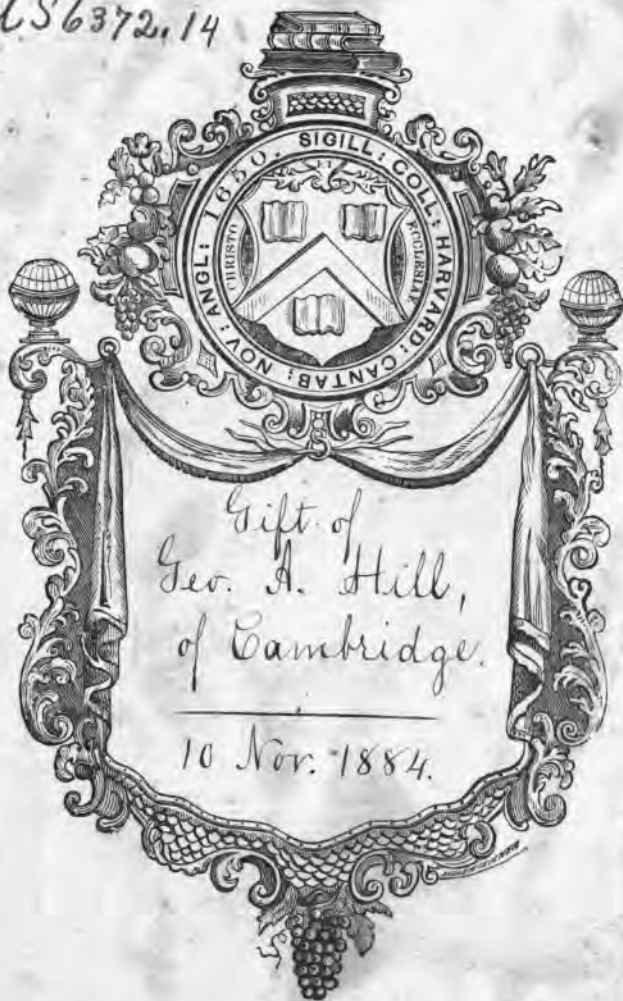 6372.14
SIGILL: COLL: HARVARD: CANTAB: NOV: ANGL: 1650.
CHRISTO
ECCLESIAE
Gift of
Geo. A. Hill,
of Cambridge.
10 Nov. 1884.